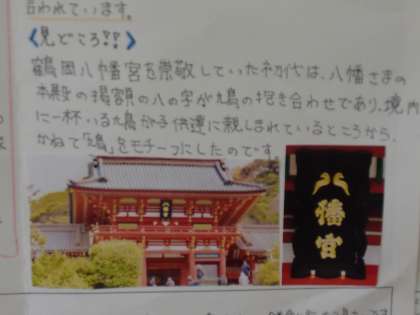 言われています。
《見どころ!!》
鶴岡八幡宮を崇敬していた初代は、八幡さまの
本殿の掲額の八の字が鳩の抱き合わせであり、境内
に一杯いる鳩が子供達に親しまれているところから、
かねて「鳩」をモチーフにしたのです。
八幡宮
幡宮